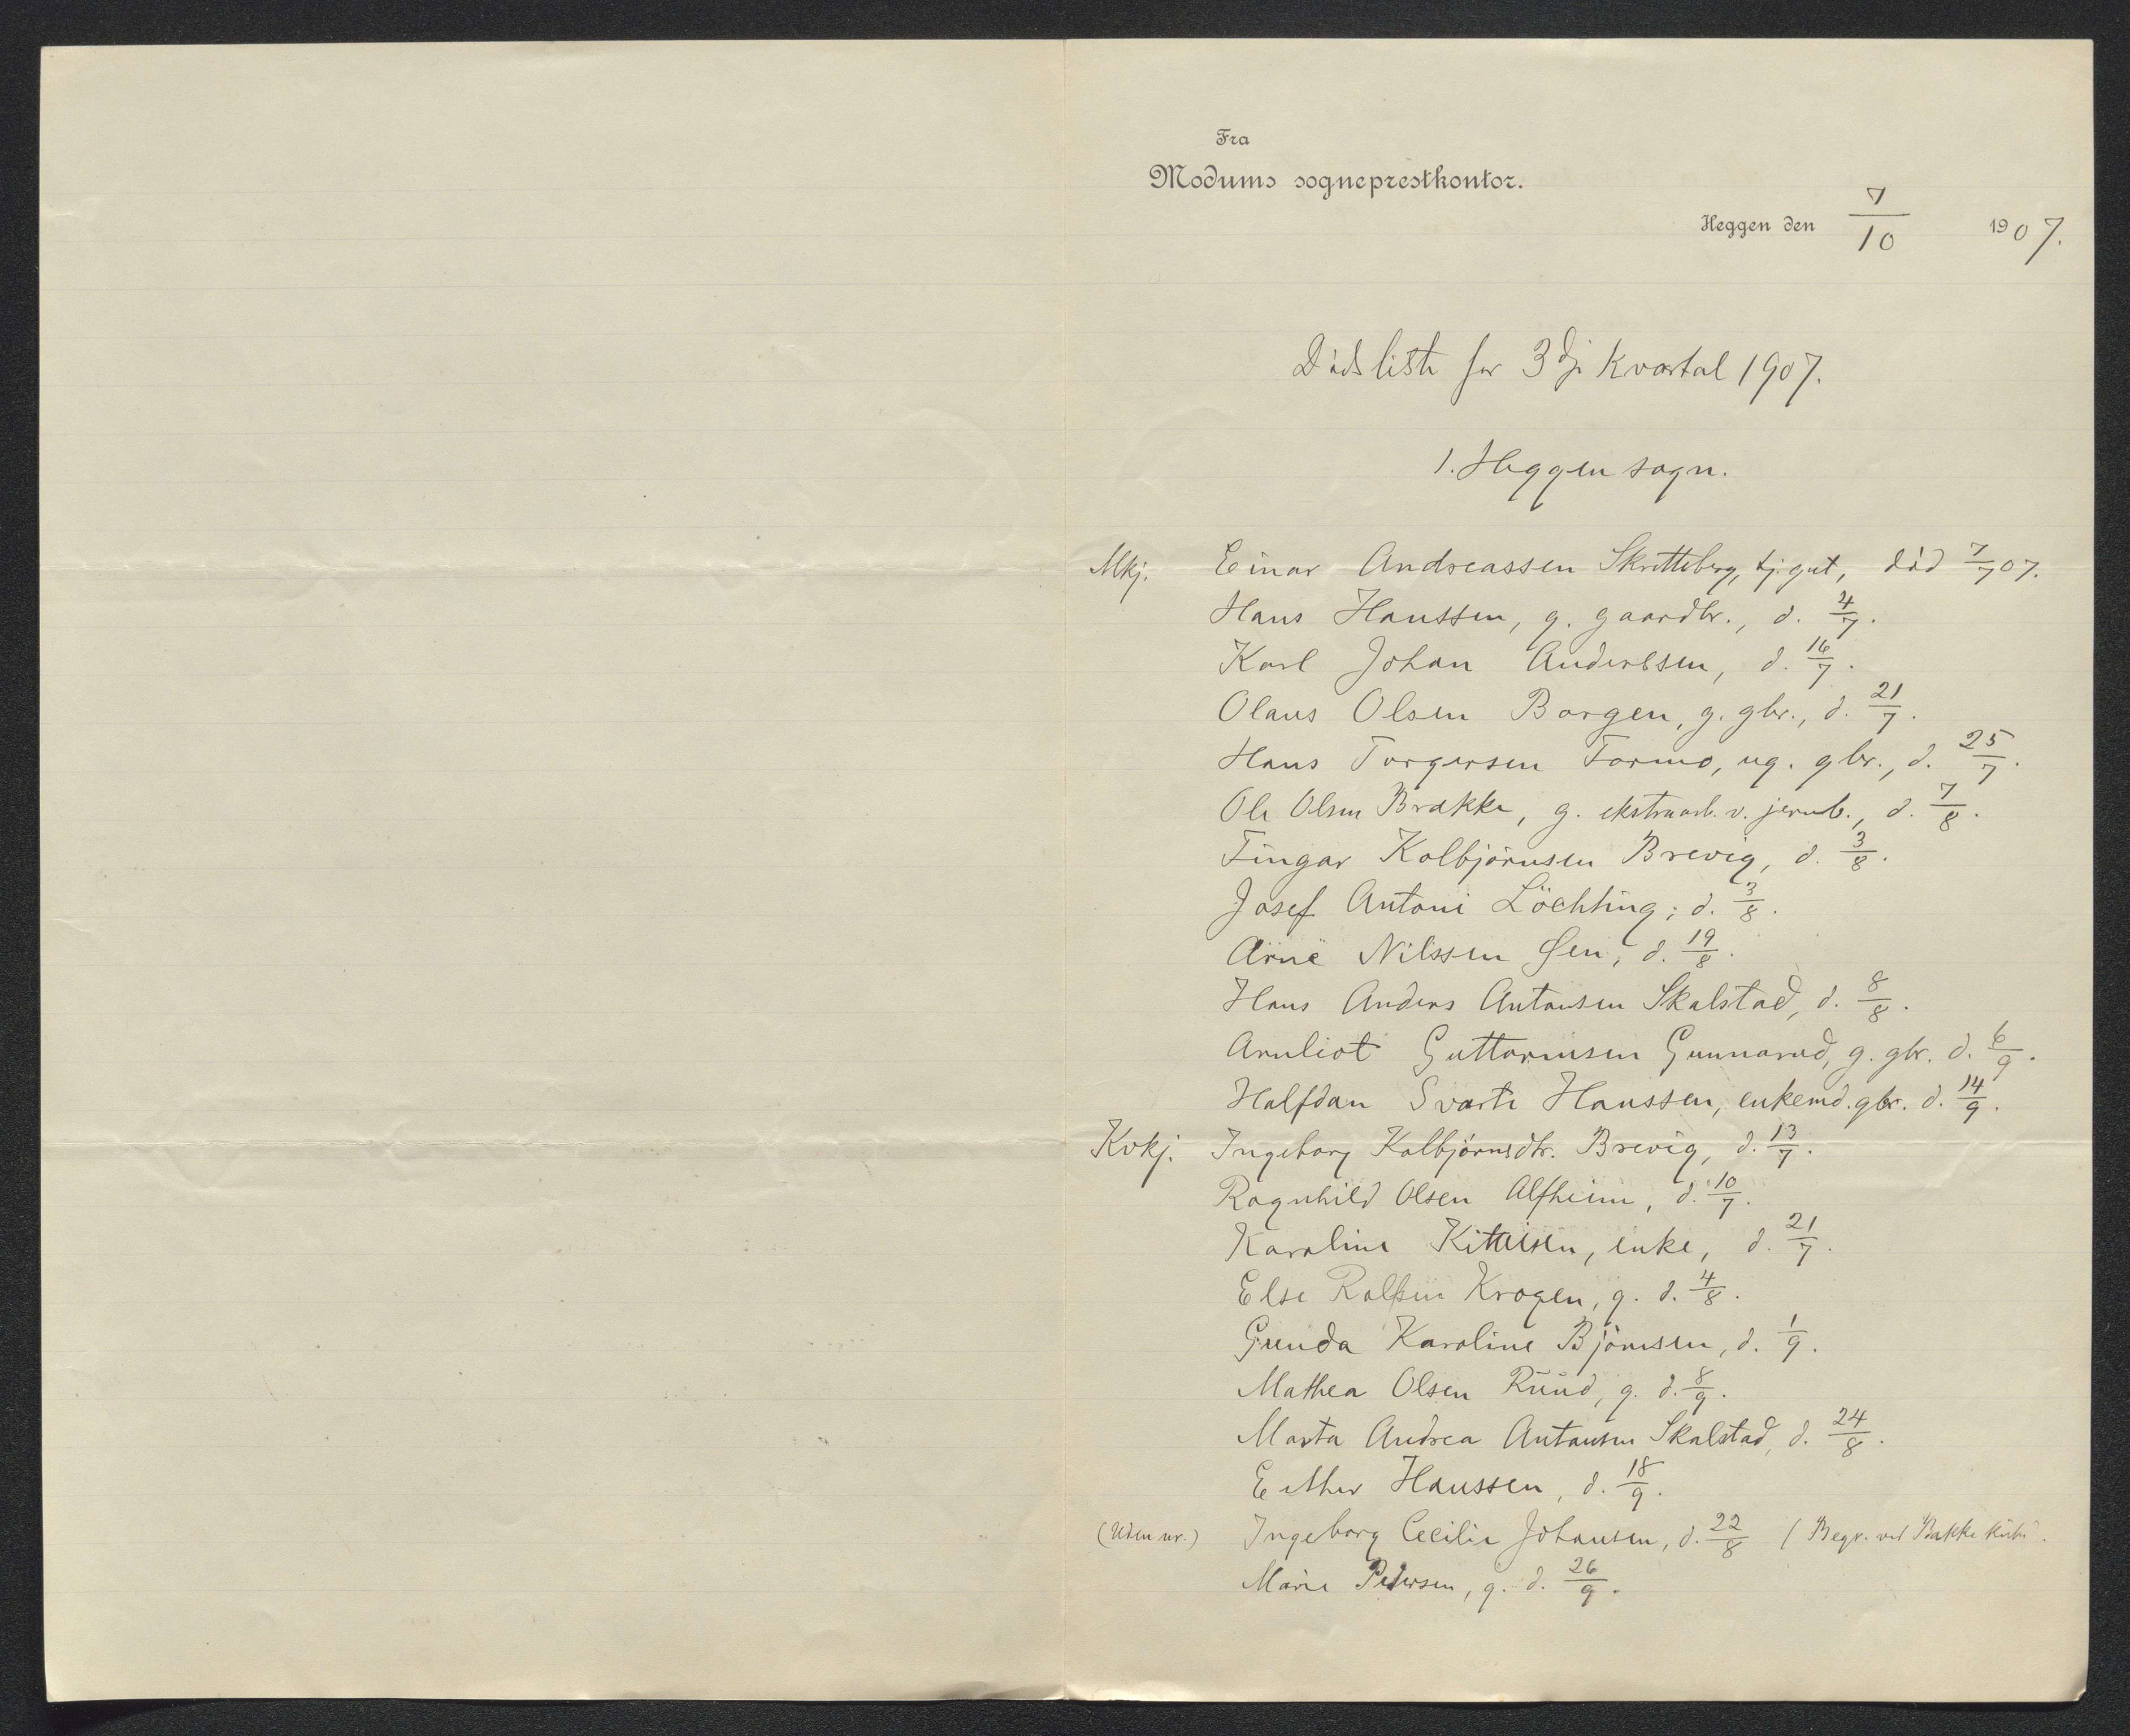 Fra
Modums sogneprestkontor.
Heggen den 7/10 1907.
Dødsliste for 3dje kvartal 1907.
1. Heggen sogn.
Mkj. Einar Andreassen Skretteberg, tj.gut, død 7/7 07.
Hans Hanssen, g. gaardbr., d. 4/7.
Karl Johan Anderssen, d. 16/7.
Olaus Olsen Borgen, g. gbr., d. 21/7.
Hans Torgersen Formo, ug. gbr., d. 25/7.
Ole Olsen Brakke, g. ekstraarb. v. jernb., d. 7/8.
Fingar Kolbjørnsen Brevig, d. 3/8.
Josef Antoni Löchting; d. 3/8.
Arne Nilssen Øen; d. 19/8.
Hans Anders Antonsen Skalstad, d. 8/8.
Arnliot Guttormsen Gunnarud, g. gbr. d. 6/9.
Halfdan Svarte Hanssen, enkemd. gbr. d. 14/9.
Kvkj. Ingeborg Kolbjørnsdtr. Brevig, d. 13/7.
Ragnhild Olsen Alfheim, d. 10/7.
Karoline Kittelsen, enke, d. 21/7.
Else Rolfsen Krogen, g. d. 4/8.
Gunda Karoline Bjørnsen, d. 1/9.
Mathea Olsen Ruud, g. d. 8/9.
Marta Andrea Antonsen Skalstad, d. 24/8.
Esther Hanssen, d. 18/9.
(Uden nr.) Ingeborg Cecilie Johansen, d. 22/8 (Begr. ved Bakke kirke.
Marie Pedersen, g. d. 26/9.